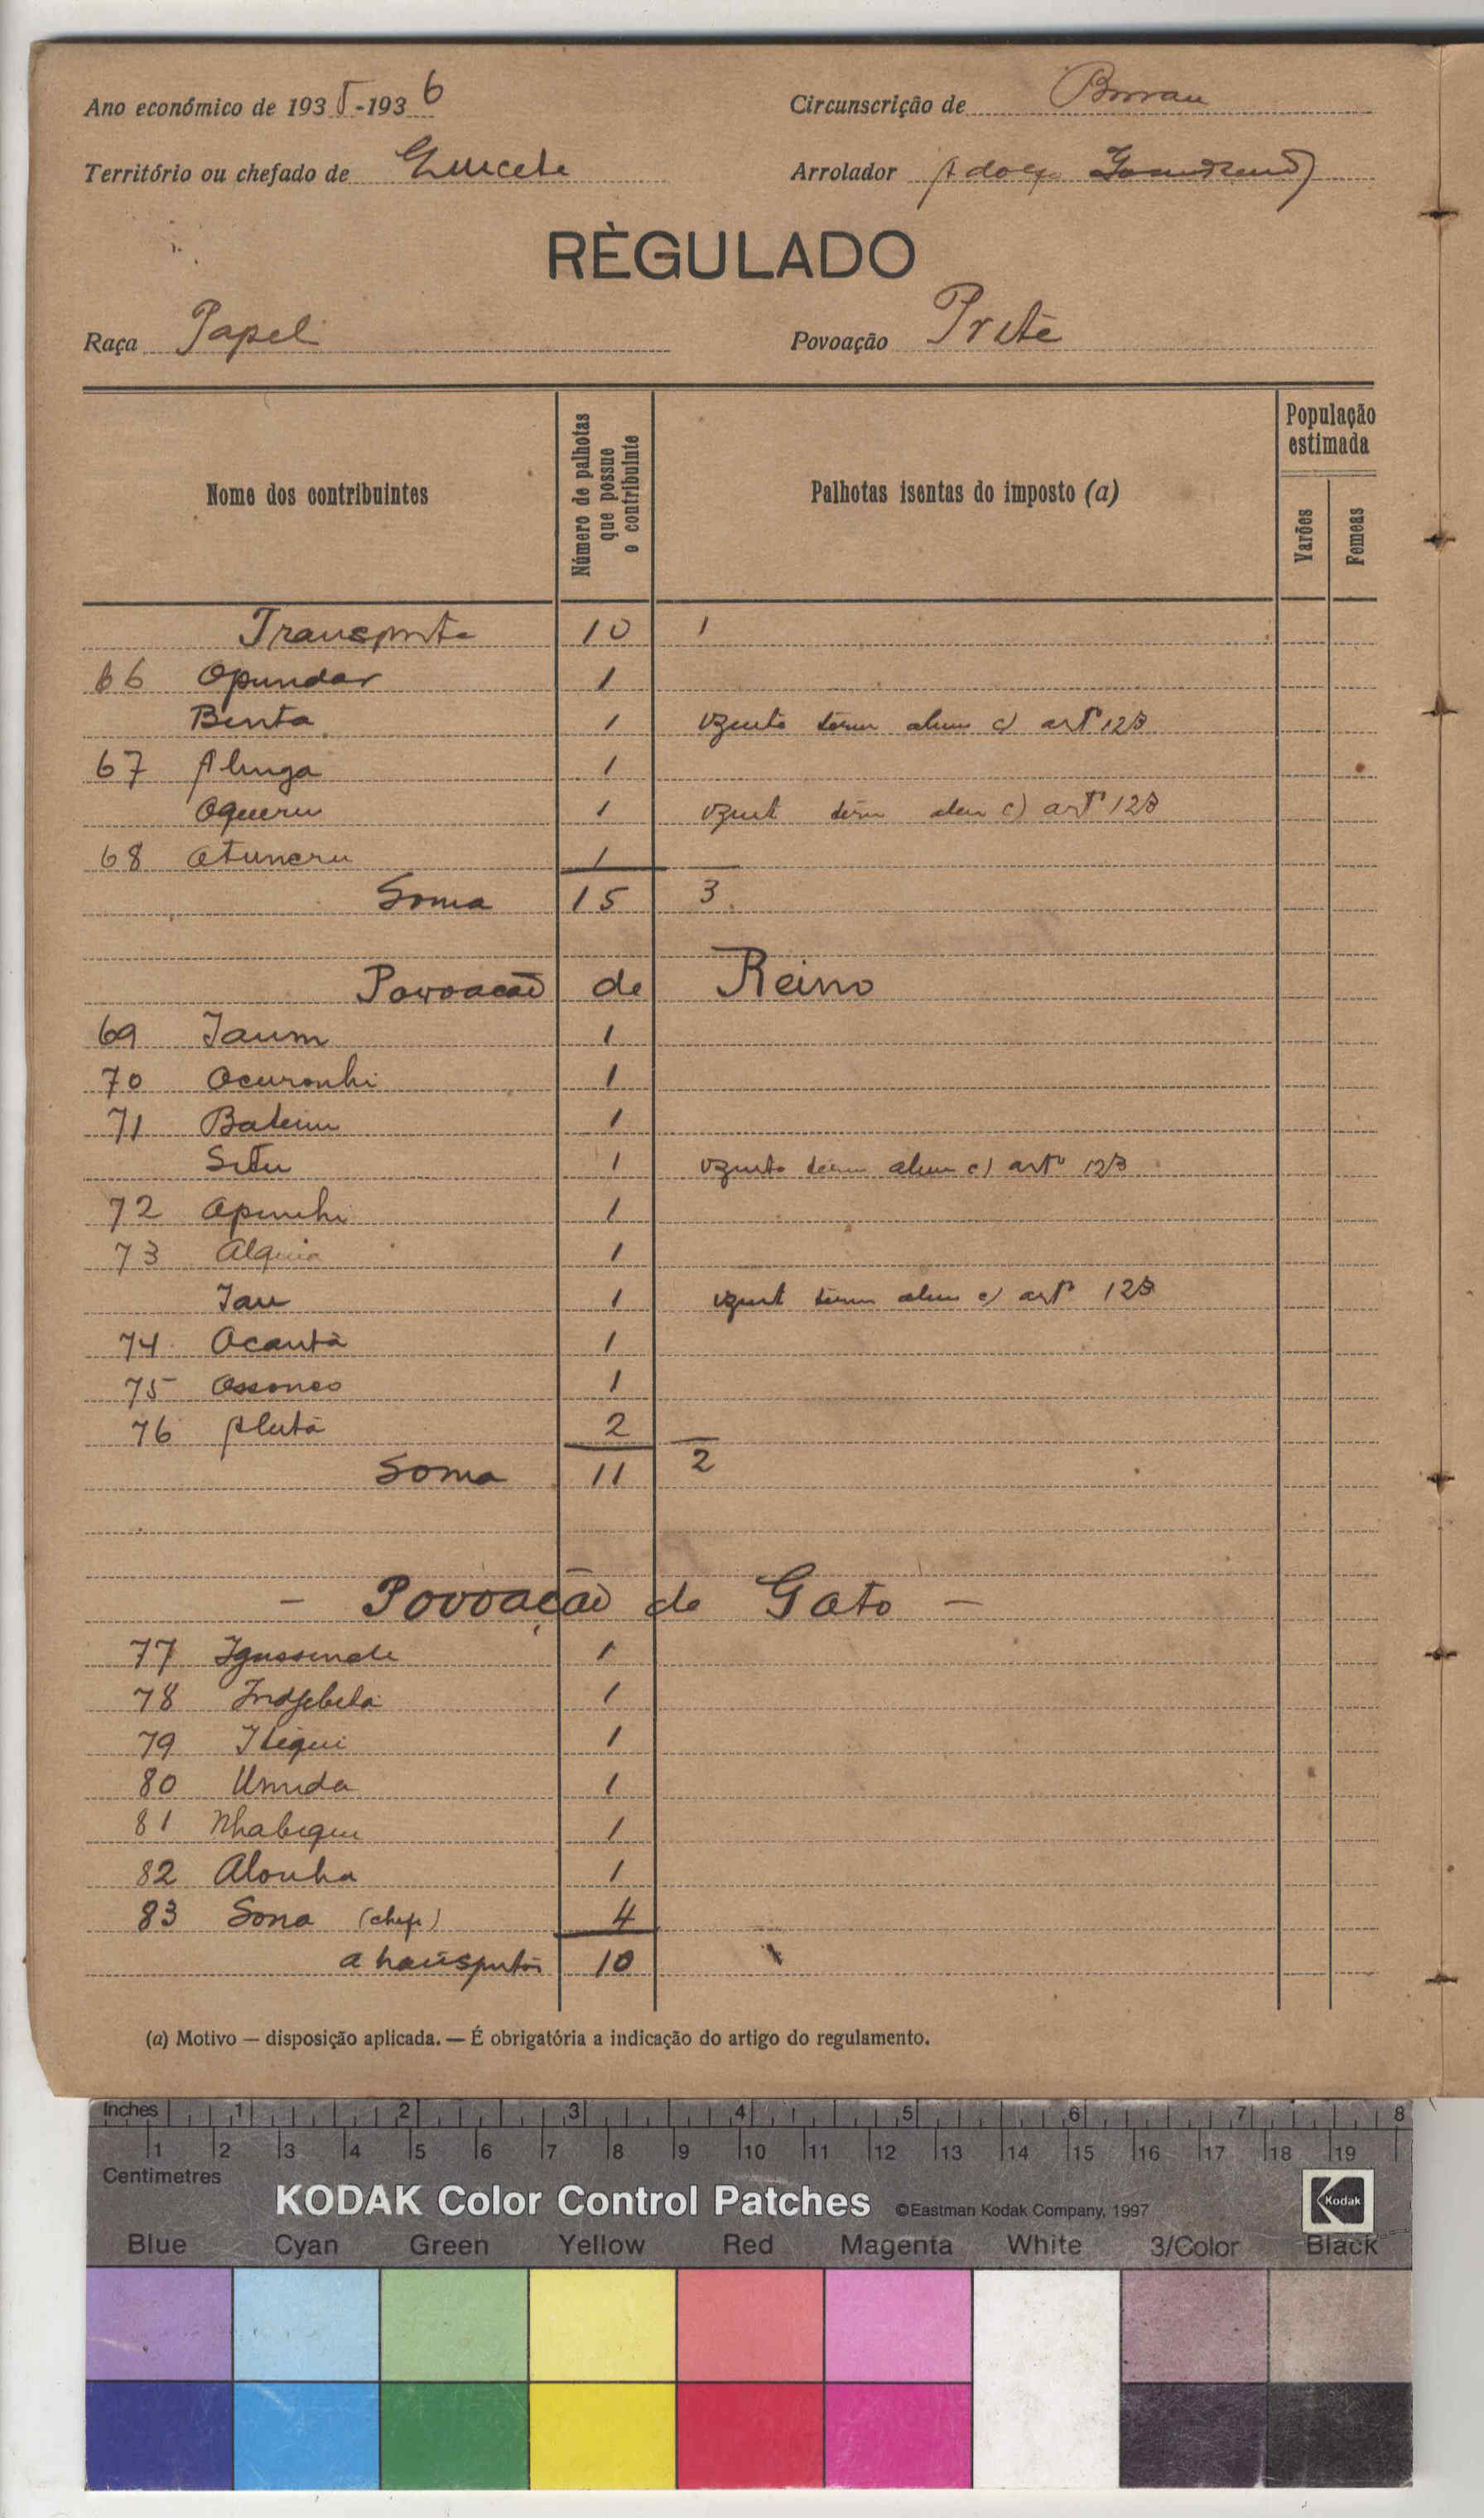 Ano económico de 1935-1936
Circunscrição de
Território ou chefado de
Arrolador Adolfo
RÈGULADO
Raça Papel
Povoação Prité
Nome dos contribuintes
Número de palhotas que possue o contribuinte
Palhotas isentas do imposto (a)
População estimada
Varões
Femeas
Transporte 10 1
66 Opundar 1
Binta 1 alem c) artº 123
67 Alinga 1
Oqueru 1 alem c) artº 123
68 Atuneru 1
Soma 15 3
Povoacão de Reino
69 Jaum 1
70 Ocuronhi 1
71 Bateim 1
Situ 1 alem c) artº 123
72 Apinhi 1
73 Alquia 1
Jau 1 alem c) artº 123
74 Ocantà 1
75 Ossonco 1
76 Alutà 2
Soma 11 2
- Povoação de Gato -
77 1
78 1
79 1
80 Umida 1
81 Nhabiqui 1
82 Alonha 1
83 Sona (chefe) 4
a transportar 10
(a) Motivo — disposição aplicada. — É obrigatória a indicação do artigo do regulamento.
Inches 1 2 3 4 5 6 7 8
1 2 3 4 5 6 7 8 9 10 11 12 13 14 15 16 17 18 19
Centimetres
KODAK Color Control Patches ©Eastman Kodak Company, 1997 Kodak
Blue Cyan Green Yellow Red Magenta White 3/Color Black